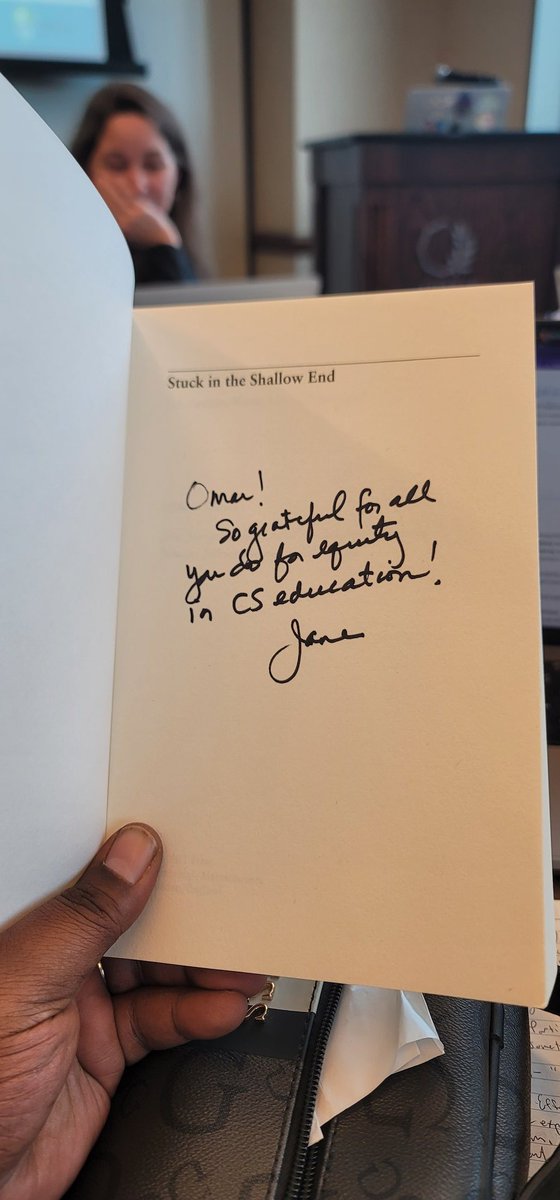 Stuck in the Shallow End
Omar!
So grateful for all
you do for equity
in CS education!
Jane